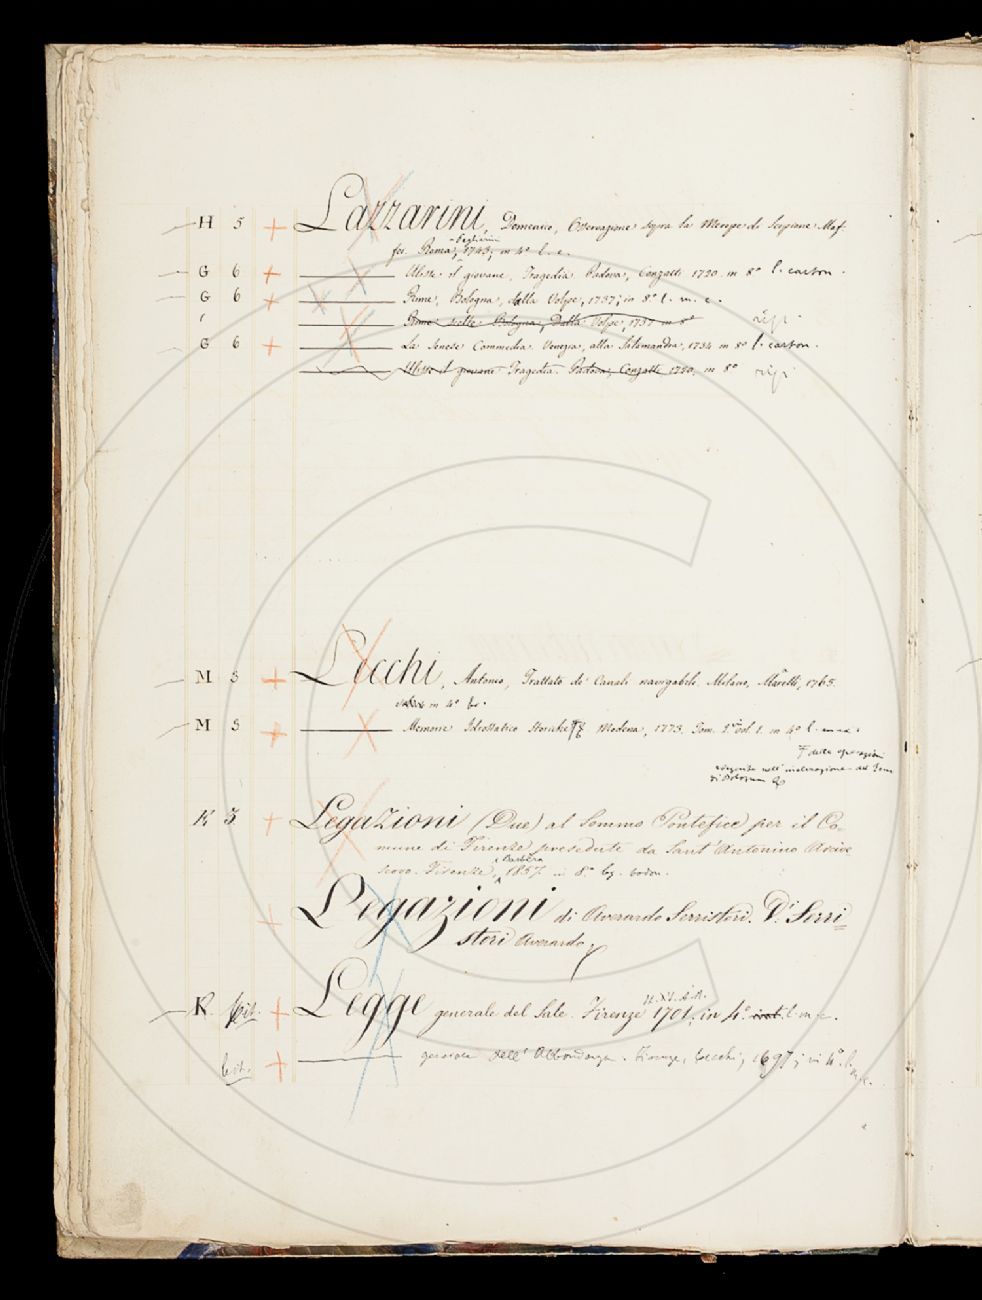 H 5 + Lazzarini, Domenico, Osservazione sopra la Merope di Scipione Maf
fei. Roma, Pagliarini 1743, in 4º l. c.
G 6 + ——— Ulisse il giovane, Tragedia. Padova, Conzatti 1720. in 8º l. carton.
G 6 + ——— Rime, Bologna, dalla Volpe, 1737, in 8º l. m. c.
——— Rime scelte. Bologna, Dalla Volpe, 1737 in 8º
G 6 + ——— La Senese Commedia. Venezia, alla Salamandra, 1734 in 8º l. carton.
——— Ulisse il giovane Tragedia. Padova, Conzatti 1720, in 8º
M 5 + Lecchi, Antonio, Trattato de' Canali navigabili, Milano, Marelli, 1765.
in 4º
M 5 + ——— Memorie Idrostatico Storiche Modena, 1773. Tom. 2. Vol. 1. in 4º l. m. c.
F delle operazioni
eseguite nell' inalveazione del Reno
di Bologna
K 3 + Legazioni (Due) al Sommo Pontefice per il Co-
mune di Firenze presedute da Sant' Antonino Arcive
scovo. Firenze, Barbèra 1857 in 8º leg. bodon.
+ Legazioni di Averardo Serristori. Dº Serri=
stori Averardo
K. + Legge generale del Sale. Firenze 1701, in 4º l. m. c.
+ ——— generale dell' Abbondanza. Firenze, Cecchi, 1697, in 4º l. m. c.